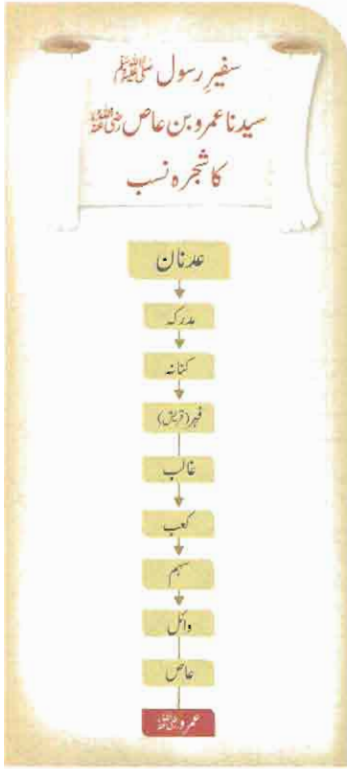 سفیرِ رسول ﷺ
سیدنا عمرو بن عاص رضی اللہ عنہ
کا شجرہ نسب
عدنان
مدرکہ
کنانہ
فہر (قریش)
غالب
کعب
سہم
وائل
عاص
عمرو رضی اللہ عنہ